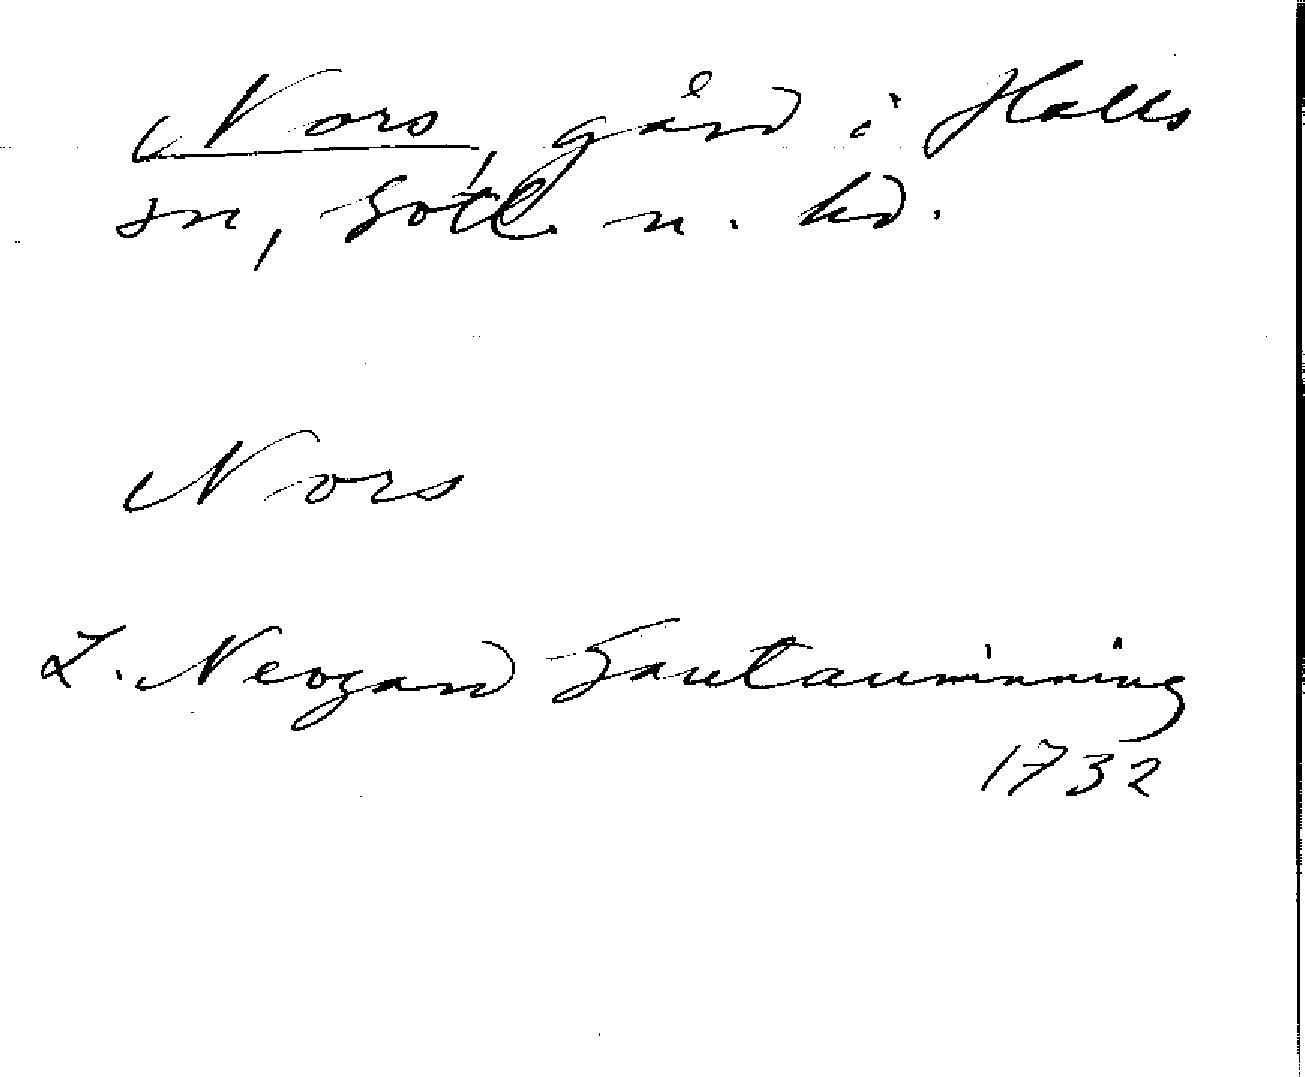 Nors, gård i Halls
sn, Gotl. n. hd.
Nors
L. Neogard Gautauminning
1732